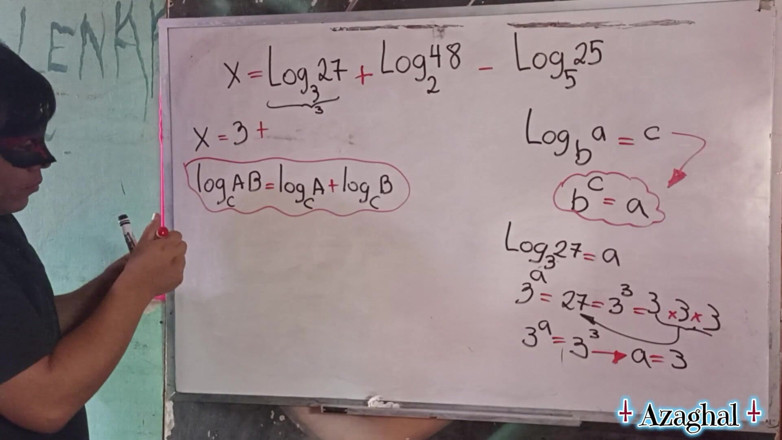 LENA
X = Log₃27 + Log₂48 - Log₅25
3
X = 3 +
log_C AB = log_C A + log_C B
Log_b a = c
b^c = a
Log₃27 = a
3^a = 27 = 3³ = 3 × 3 × 3
3^a = 3³ → a = 3
Azaghal